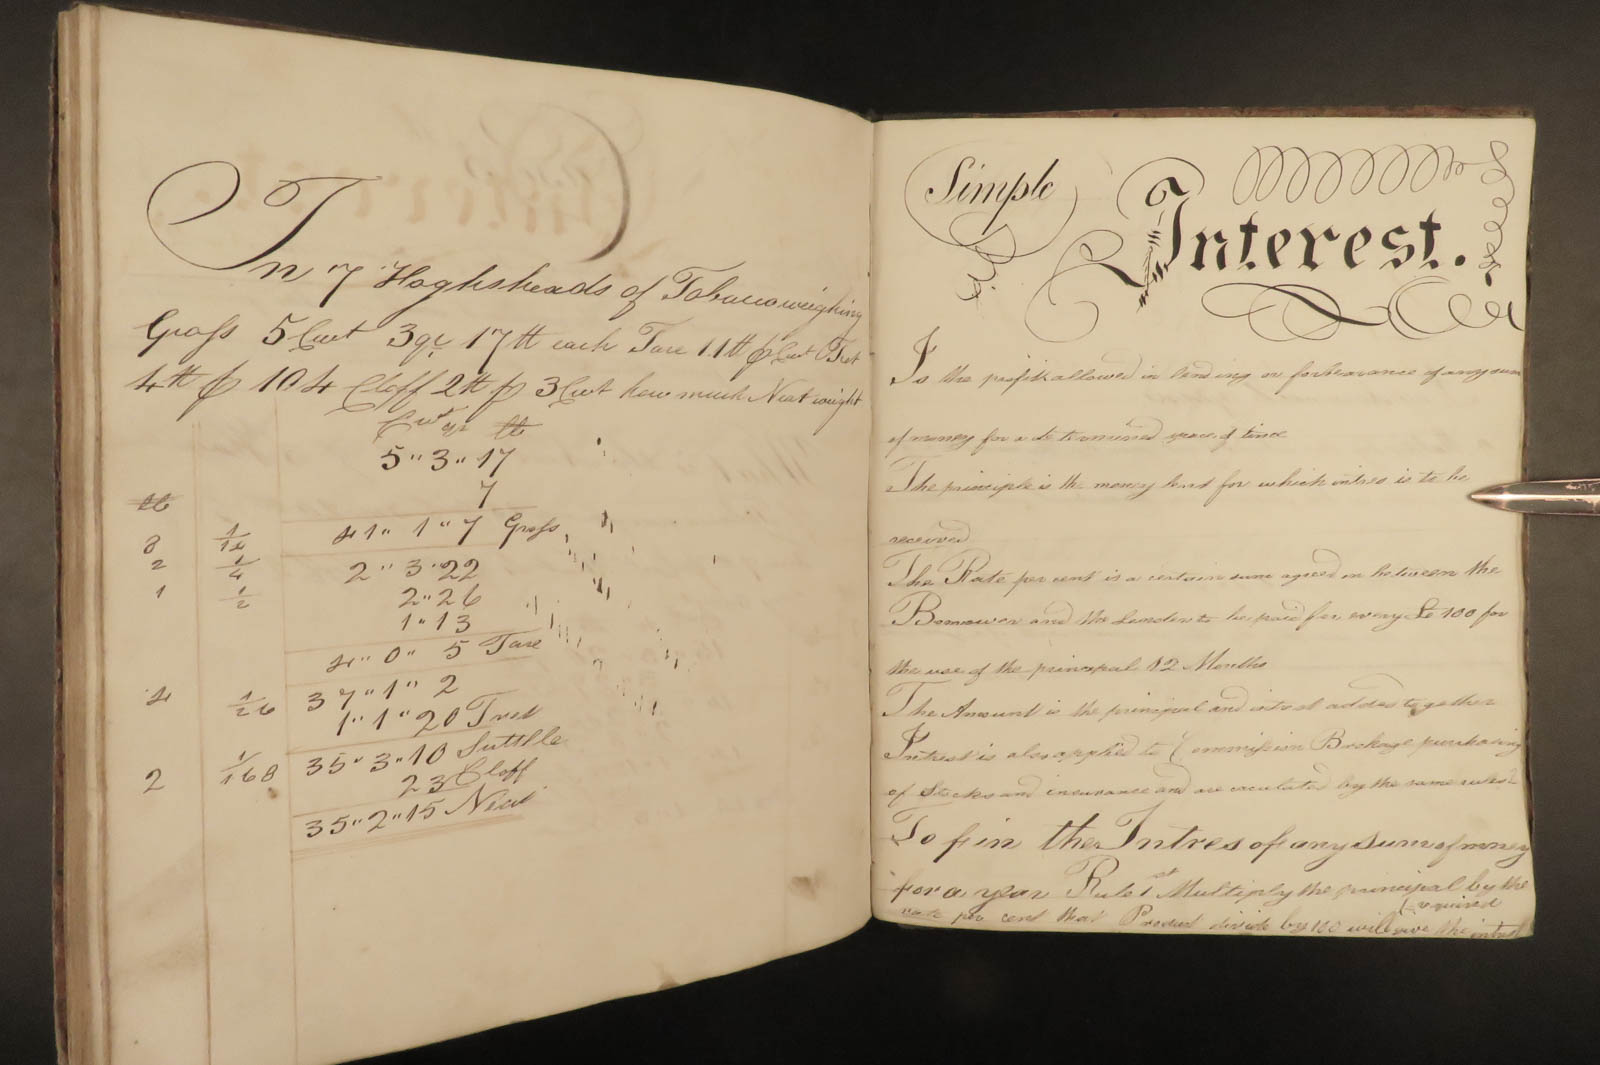 In 7 Hoghsheads of Tobacco weighing
Gross 5 Cwt 3 qr 17 ℔ each Tare 11 ℔ ⅌ Cwt Tret
4 ℔ ⅌ 104 Cloff 2 ℔ ⅌ 3 Cwt how much Neat weight
Cwt qr ℔
5 " 3 " 17
7
℔
41 " 1 " 7 Gross
8 1/14 2 " 3 " 22
2 1/4 2 " 26
1 1/2 1 " 13
4 " 0 " 5 Tare
4 1/26 37 " 1 " 2
1 " 1 " 20 Tret
35 " 3 " 10 Suttle
2 1/168 23 Cloff
35 " 2 " 15 Neat
Simple
Interest.
Is the profit allowed in lending or forbearance of any sum
of money for a determined space of time
The principle is the money lend for which intres is to be
received
The Rate per cent is a certain sum agreed on between the
Borrower and the Lender to be paid for every £ 100 for
the use of the principal 12 Months
The Amount is the principal and intrest added together
Intrest is also applied to Commission Brokage purchasing
of Stocks and insurance and are caculated by the same rules
To fin the Intres of any sum of money
for a year Rule 1st Multiply the principal by the
rate per cent that Product divide by 100 will give the intrest
required